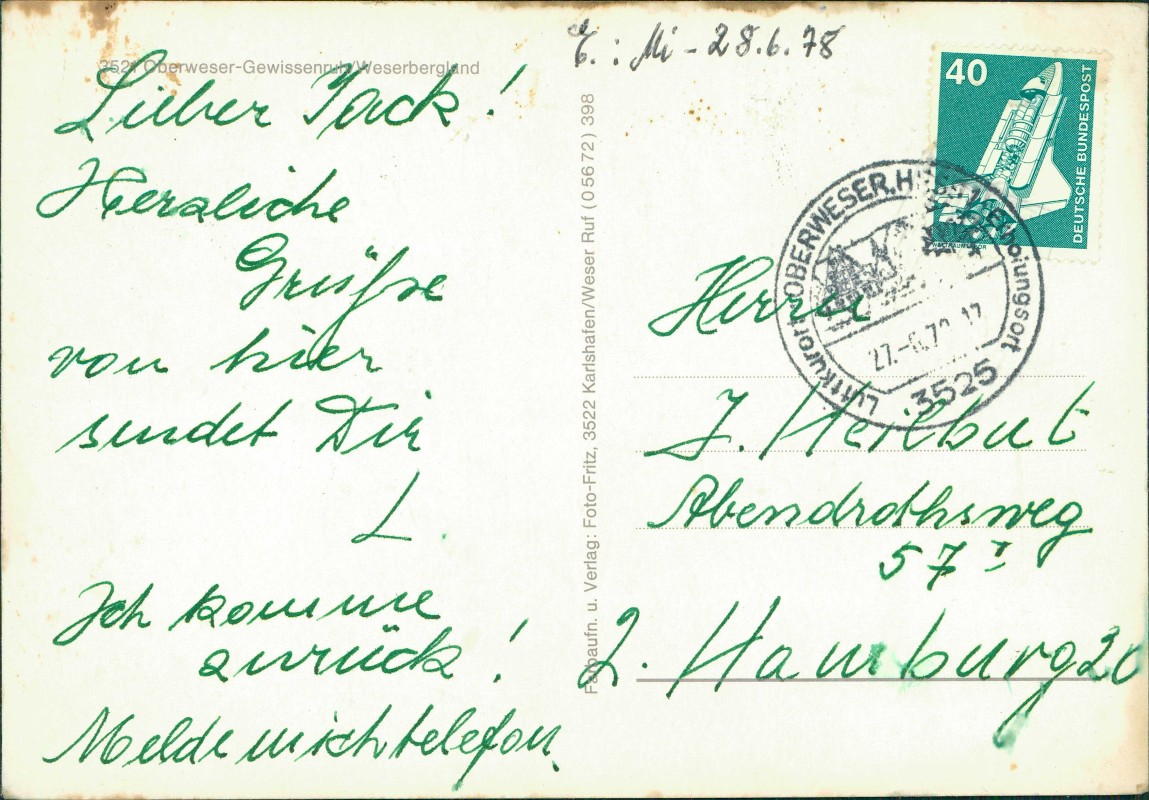 3521 Oberweser-Gewissenruh/Weserbergland
E.: Mi - 28.6.78
Lieber Jack!
Herzliche
Grüße
von hier
sendet Dir
L.
Ich komme
zurück!
Melde mich telefon.
Farbaufn. u. Verlag: Foto-Fritz, 3522 Karlshafen/Weser Ruf (05672) 398
40
DEUTSCHE BUNDESPOST
OBERWESER, 
Luftkurort
3525
Herrn
J. Heilbut
Abendrothsweg
57 I
2. Hamburg 20